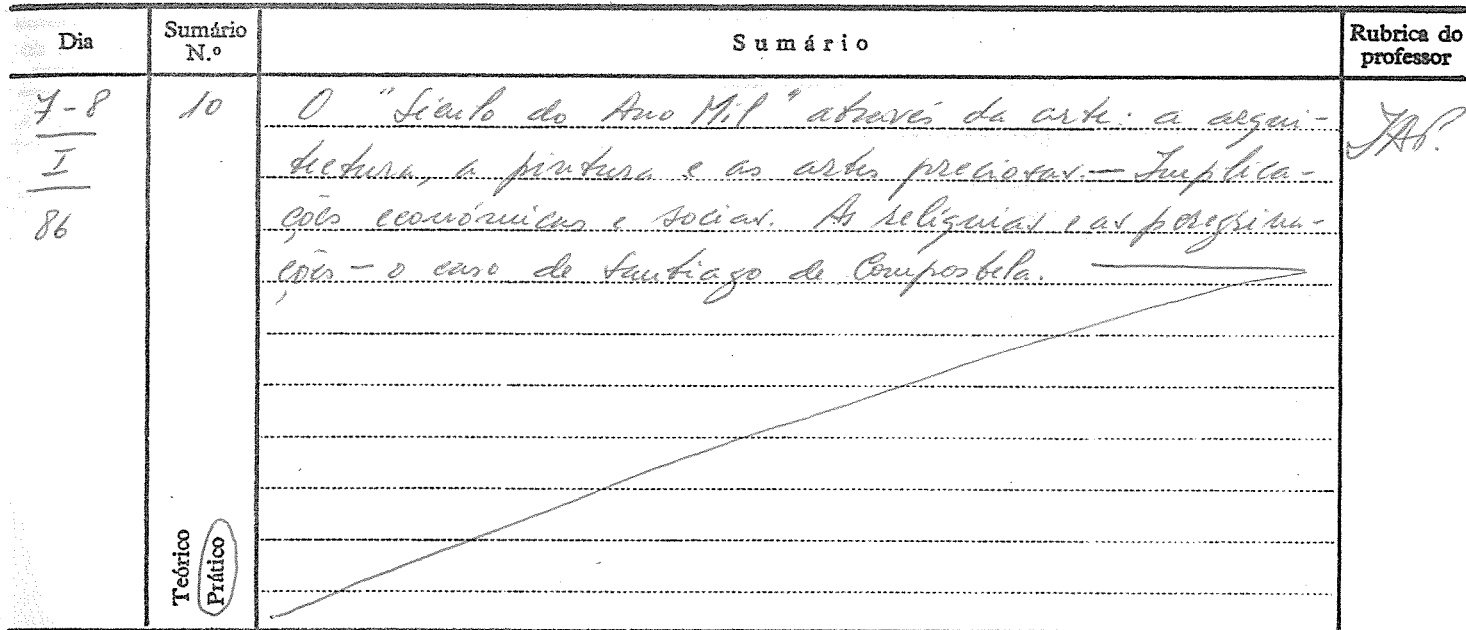 Dia
Sumário N.º
Sumário
Rubrica do professor
7-8
I
86
10
O "Século do Ano Mil" através da arte: a arqui-
tectura, a pintura e as artes preciosas. — Implica-
ções económicas e sociais. As relíquias e as peregrina-
ções - o caso de Santiago de Compostela. —
Teórico
Prático